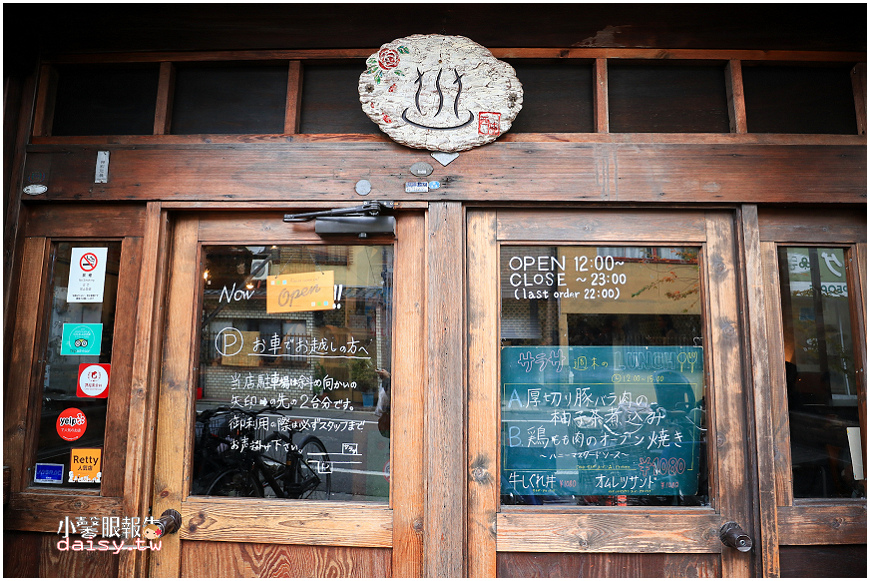 OPEN 12:00~
CLOSE ~ 23:00
(last order 22:00)
Now Open!!
P お車でお越しの方へ
当店駐車場は斜の向かいの
矢印➡の先の2台分です。
御利用の際は必ずスタッフまで
お声掛け下さい。
サラサ 週末の Lunch
12:00~15:00
A 厚切り豚バラ肉の
柚子茶煮込み
B 鶏もも肉のオーブン焼き
~ハニーマスタードソース~
¥1080
牛しぐれ丼
オムレツサンド
yelp
Retty
人気店
小馨眼報告
daisy.tw